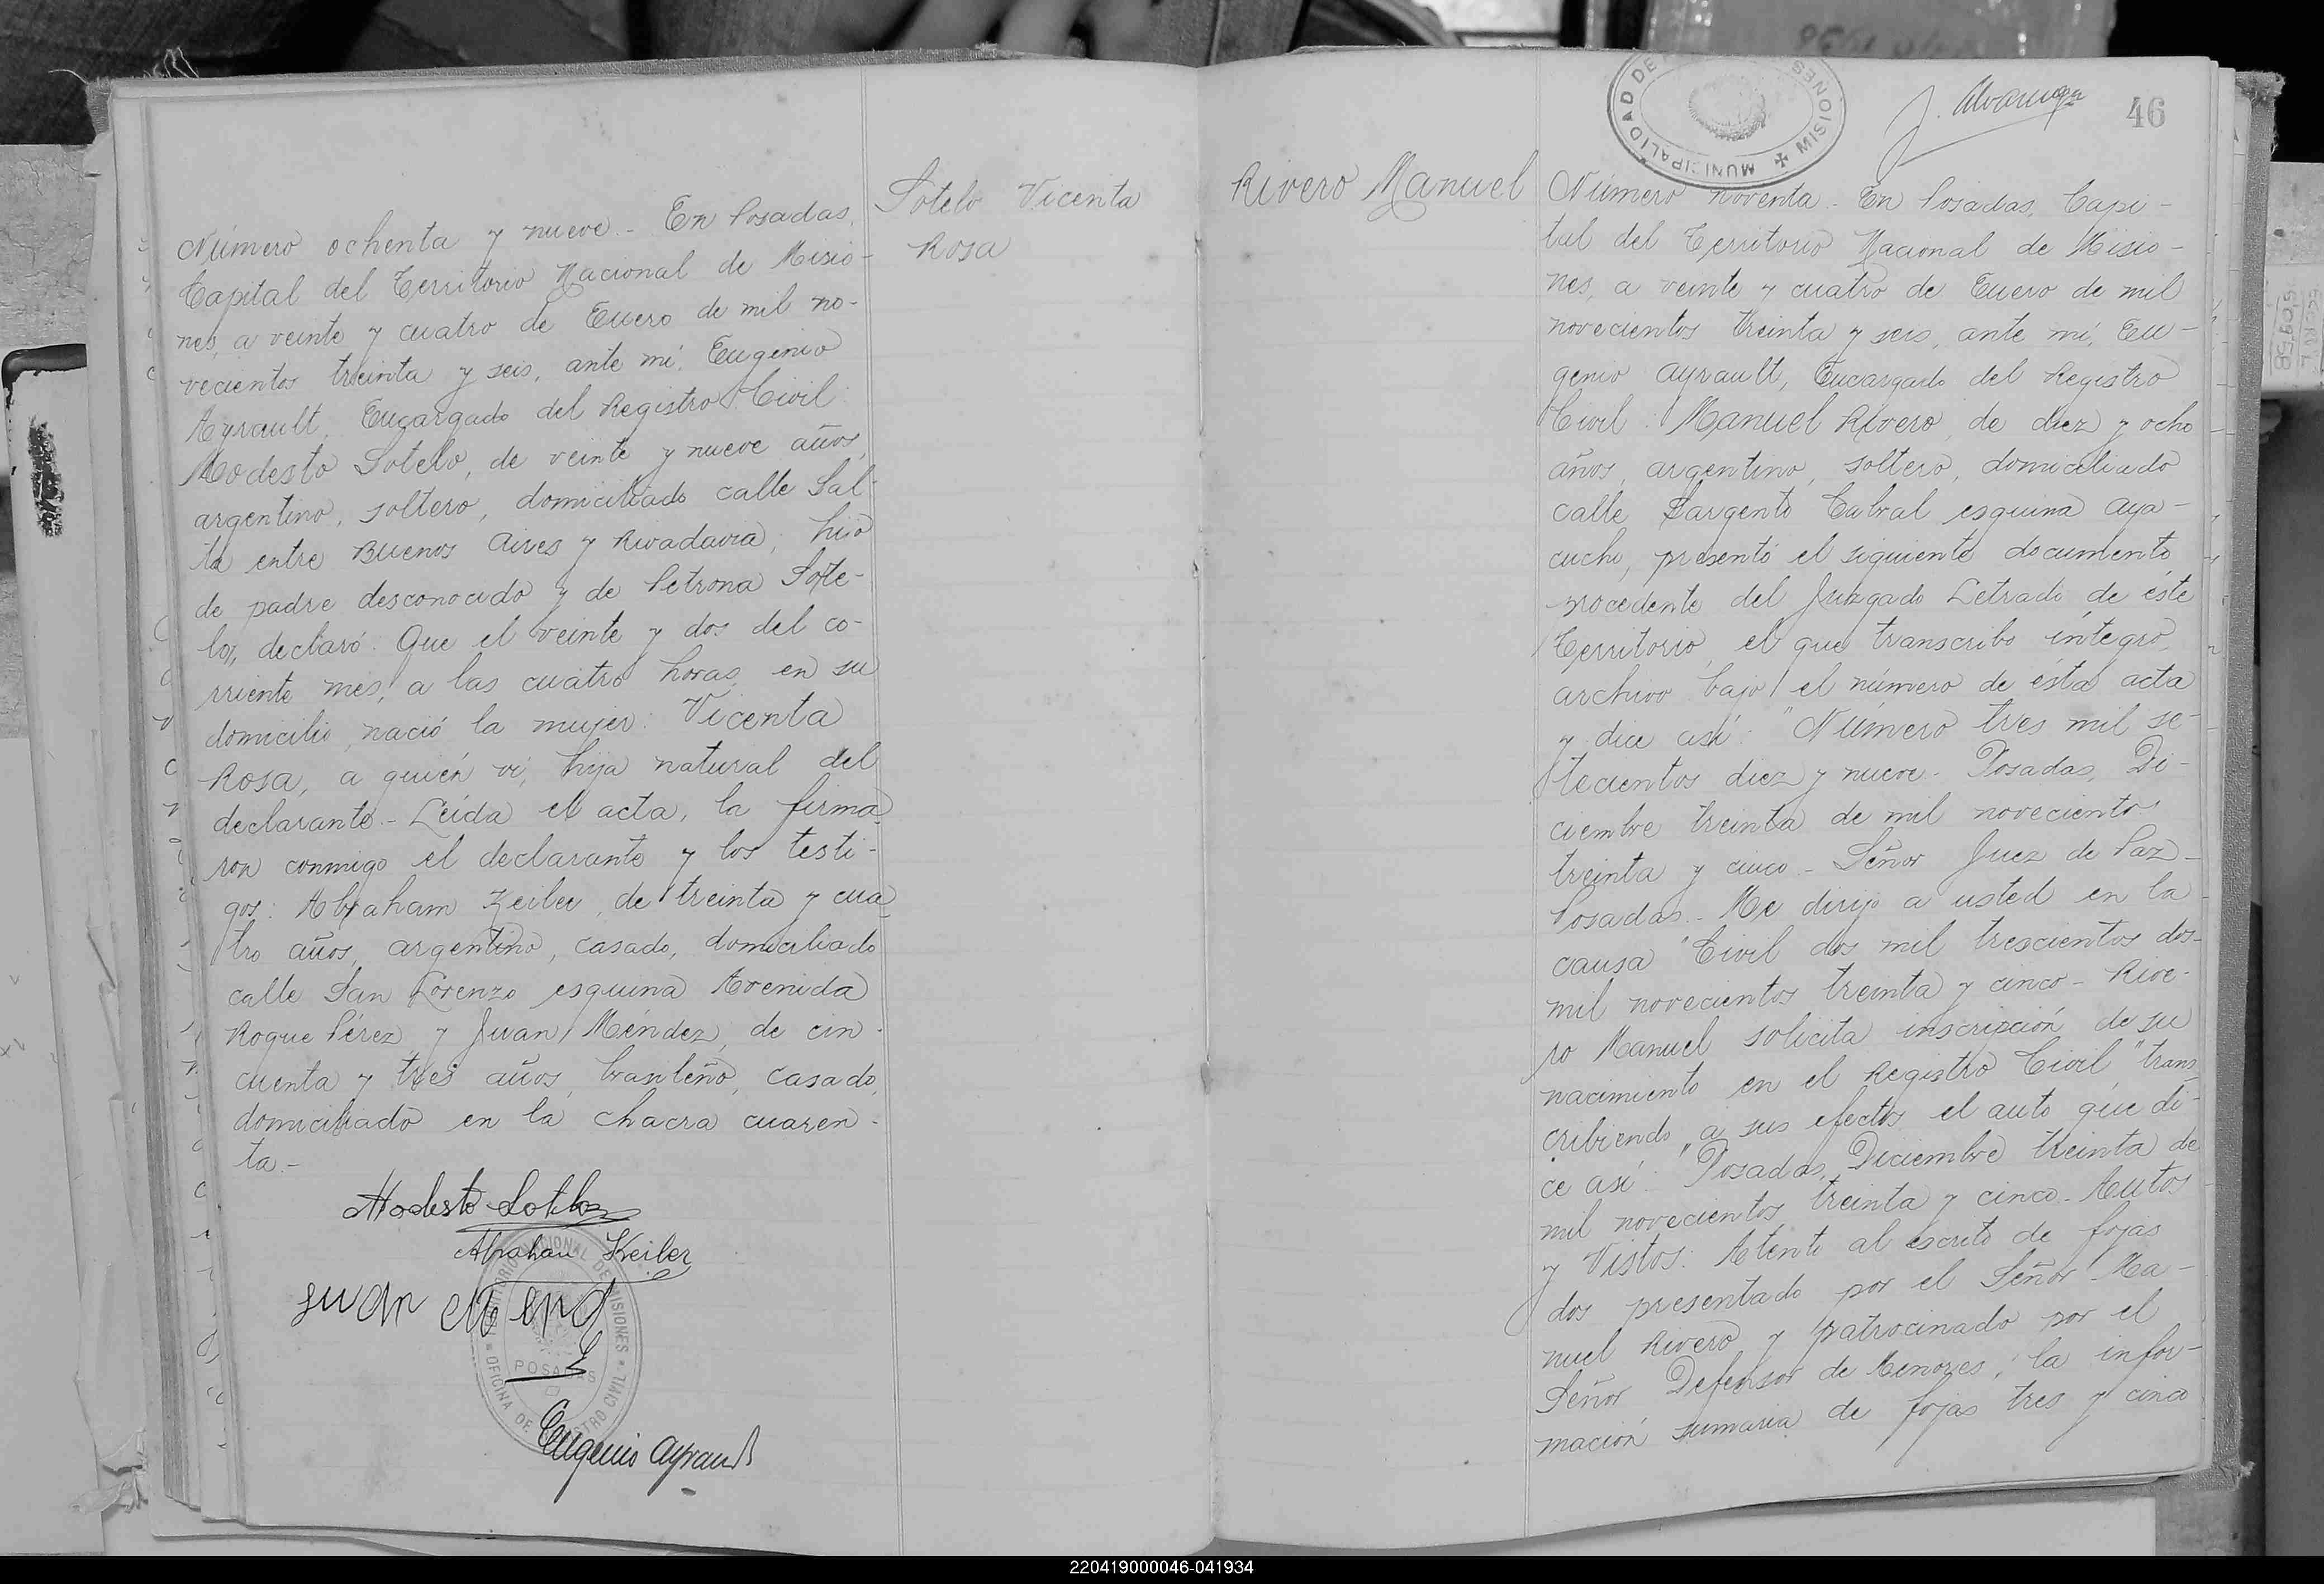 Sotelo Vicenta
Rosa
Número ochenta y nueve.- En Posadas,
Capital del Territorio Nacional de Misio-
nes, a veinte y cuatro de Enero de mil no-
vecientos treinta y seis, ante mí, Eugenio
Ayrault, Encargado del Registro Civil:
Modesto Sotelo, de veinte y nueve años,
argentino, soltero, domiciliado calle Sal-
ta entre Buenos Aires y Rivadavia, hijo
de padre desconocido y de Petrona Sote-
lo, declaró: Que el veinte y dos del co-
rriente mes, a las cuatro horas, en su
domicilio, nació la mujer: Vicenta
Rosa, a quién ví, hija natural del
declarante.- Leída el acta, la firma-
ron conmigo el declarante y los testi-
gos: Abraham Keiler, de treinta y cua-
tro años, argentino, casado, domiciliado
calle San Lorenzo esquina Avenida
Roque Pérez y Juan Méndez, de cin-
cuenta y tres años, brasileño, casado,
domiciliado en la chacra cuaren-
ta.-
Modesto Sotelo
Abraham Keiler
Juan Mend
ez
TERRITORIO NACIONAL DE MISIONES
OFICINA DE REGISTRO CIVIL
POSADAS
Eugenio Ayrault
MUNICIPALIDAD DE MISIONES
46
Rivero Manuel
Número noventa.- En Posadas, Capi-
tal del Territorio Nacional de Misio-
nes, a veinte y cuatro de Enero de mil
novecientos treinta y seis, ante mí, Eu-
genio Ayrault, Encargado del Registro
Civil: Manuel Rivero, de diez y ocho
años, argentino, soltero, domiciliado
calle Sargento Cabral esquina Aya-
cucho, presentó el siguiente documento
procedente del Juzgado Letrado de éste
Territorio, el que transcribo íntegro,
archivo bajo el número de ésta acta
y dice así: "Número tres mil se-
tecientos diez y nueve.- Posadas, Di-
ciembre treinta de mil novecientos
treinta y cinco.- Señor Juez de Paz.-
Posadas.- Me dirijo a usted en la
causa "Civil dos mil trescientos dos-
mil novecientos treinta y cinco- Rive-
ro Manuel solicita inscripción de su
nacimiento en el Registro Civil" trans-
cribiendo a sus efectos el auto que di-
ce así: "Posadas, Diciembre treinta de
mil novecientos treinta y cinco- Autos
y Vistos: Atento al escrito de fojas
dos presentado por el Señor Ma-
nuel Rivero y patrocinado por el
Señor Defensor de Menores, la infor-
mación sumaria de fojas tres y cinco
220419000046-041934